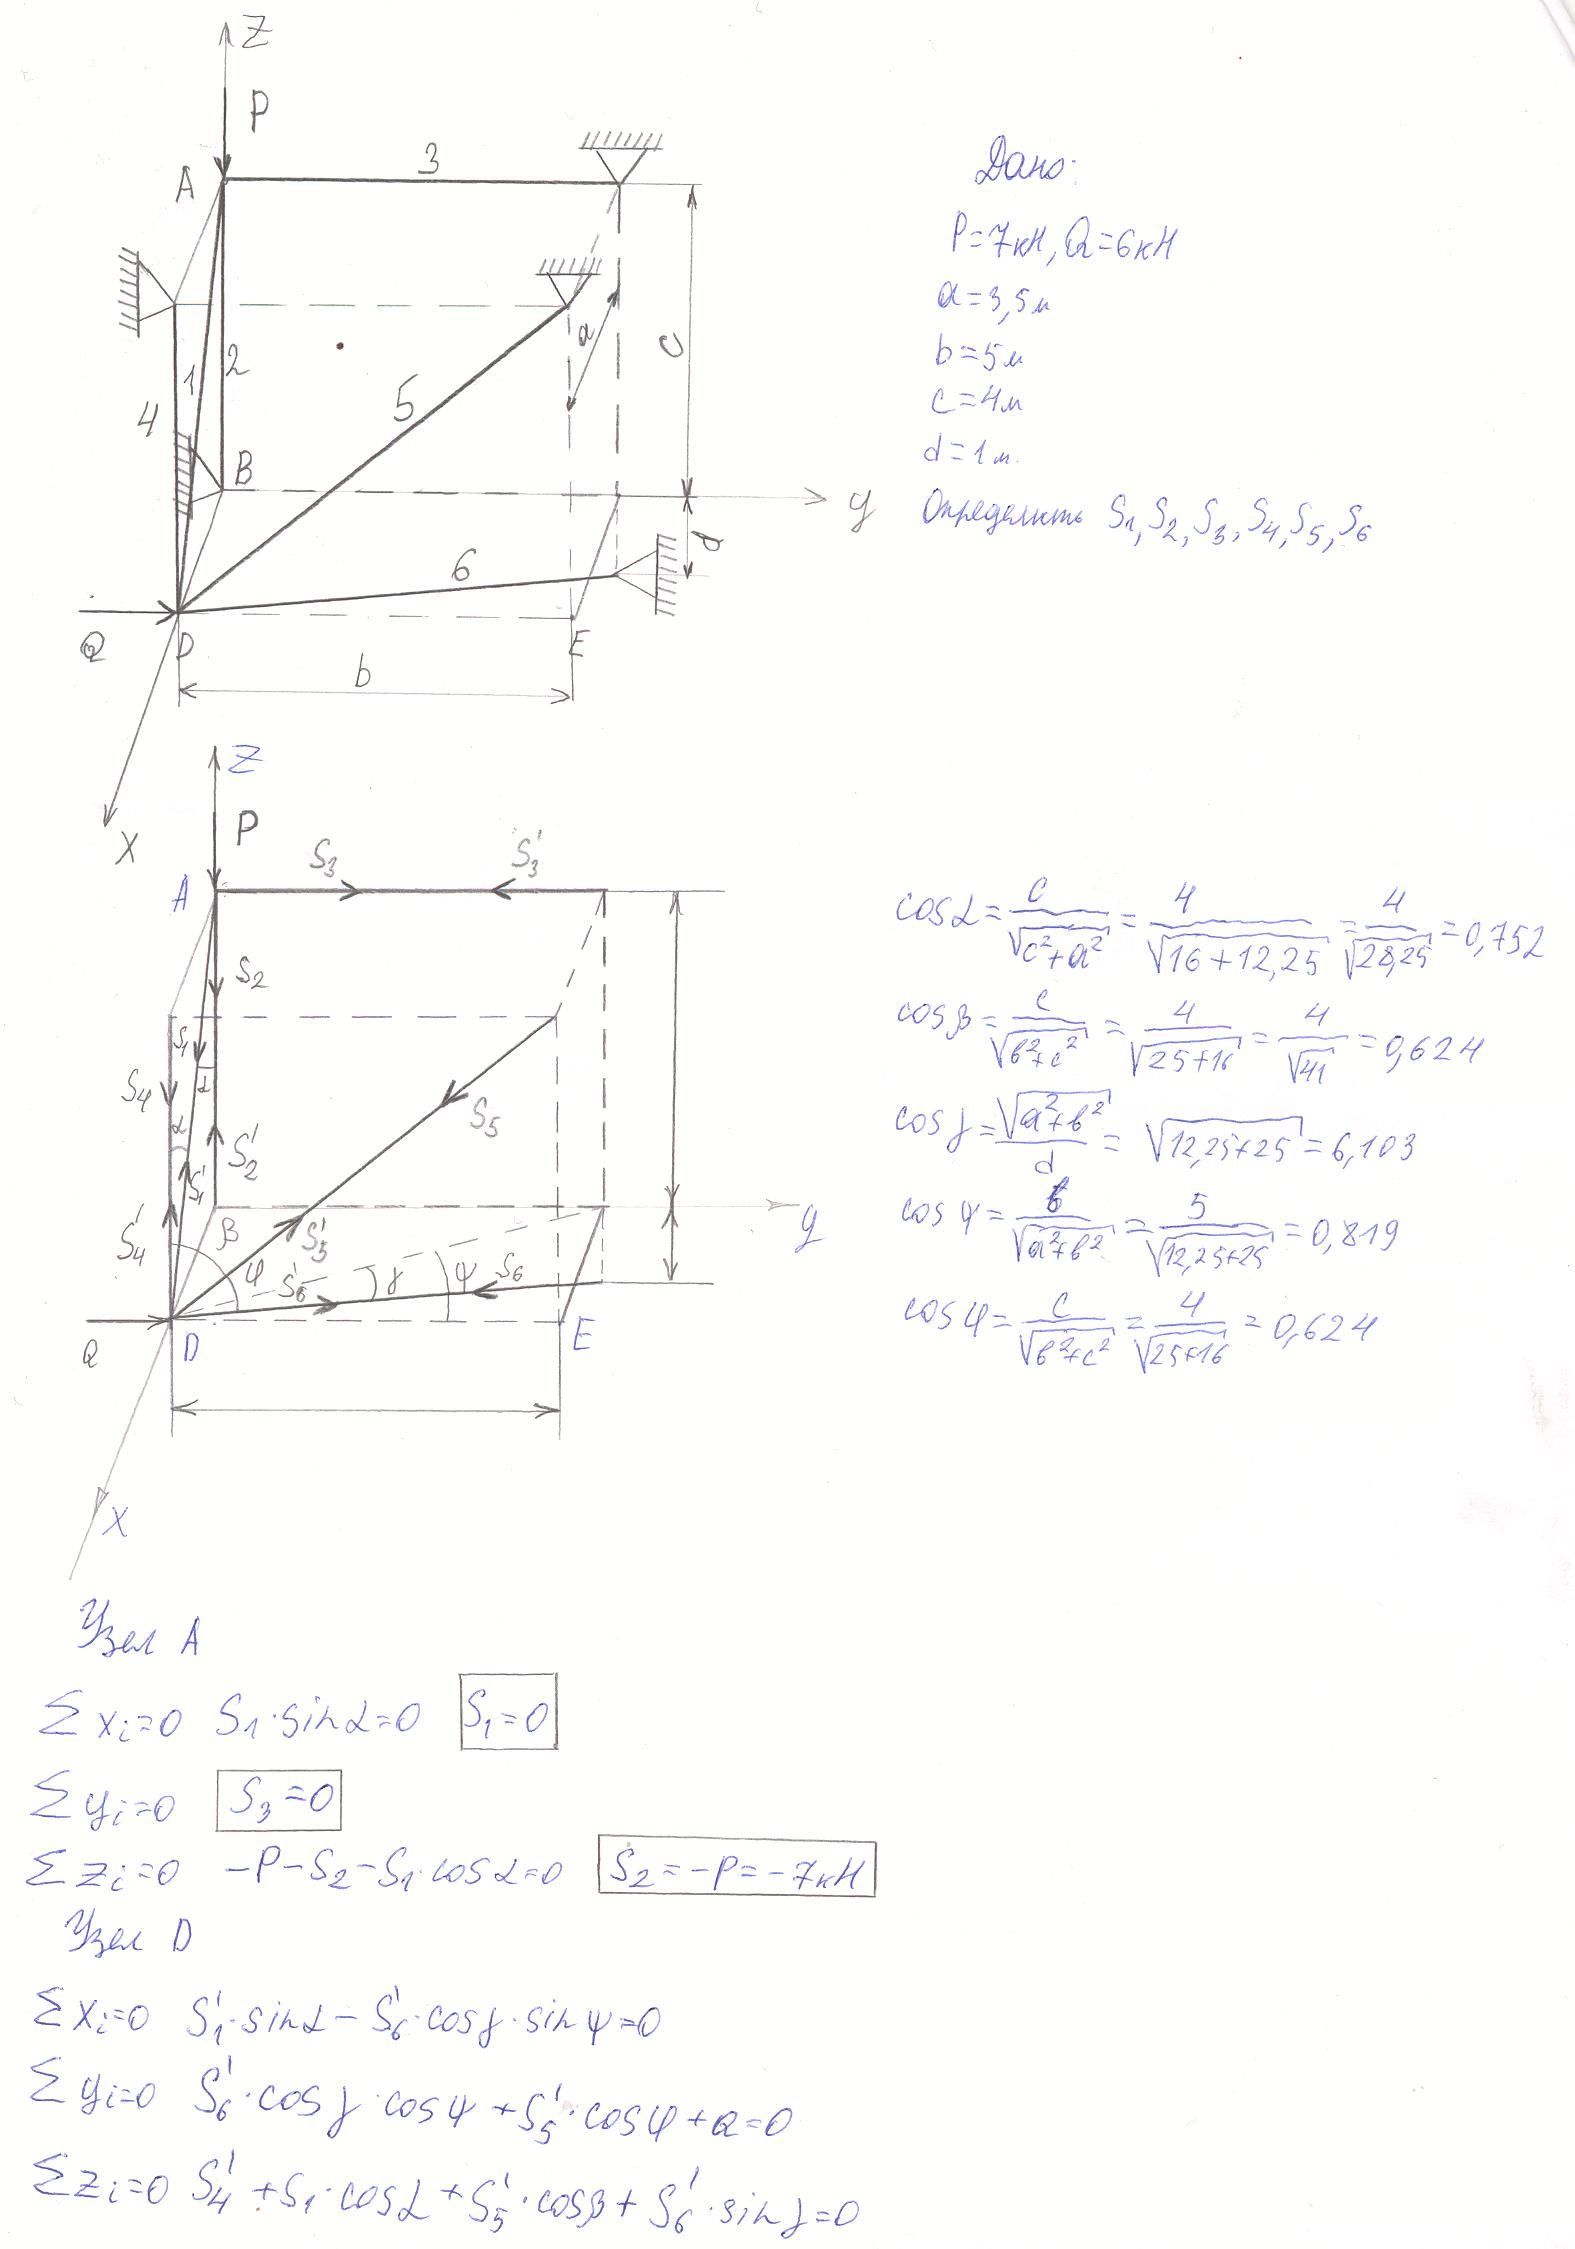 Z
P
A
3
Дано:
P=7кН, Q=6кН
a=3,5м
b=5м
c=4м
d=1м.
Определить S₁, S₂, S₃, S₄, S₅, S₆
a
c
1
2
4
5
B
y
d
6
Q
D
E
b
X
Z
P
S₃
S₃'
A
S₂
S₁
α
S₄
S₅
α
S₁'
S₂'
S₄'
β
S₅'
y
φ
S₆'
γ
ψ
S₆
Q
D
E
X
cosα = c/√(c²+a²) = 4/√(16+12,25) = 4/√28,25 = 0,752
cosβ = c/√(в²+c²) = 4/√(25+16) = 4/√41 = 0,624
cosγ = √(a²+в²)/d = √(12,25+25) = 6,103
cosψ = в/√(a²+в²) = 5/√(12,25+25) = 0,819
cosφ = c/√(в²+c²) = 4/√(25+16) = 0,624
Узел A
Σxi=0 S₁·sinα=0 S₁=0
Σyi=0 S₃=0
Σzi=0 -P-S₂-S₁·cosα=0 S₂=-P=-7кН
Узел D
Σxi=0 S₁'·sinα-S₆'·cosγ·sinψ=0
Σyi=0 S₆'·cosγ·cosψ+S₅'·cosφ+Q=0
Σzi=0 S₄'+S₁·cosα+S₅'·cosβ+S₆'·sinγ=0